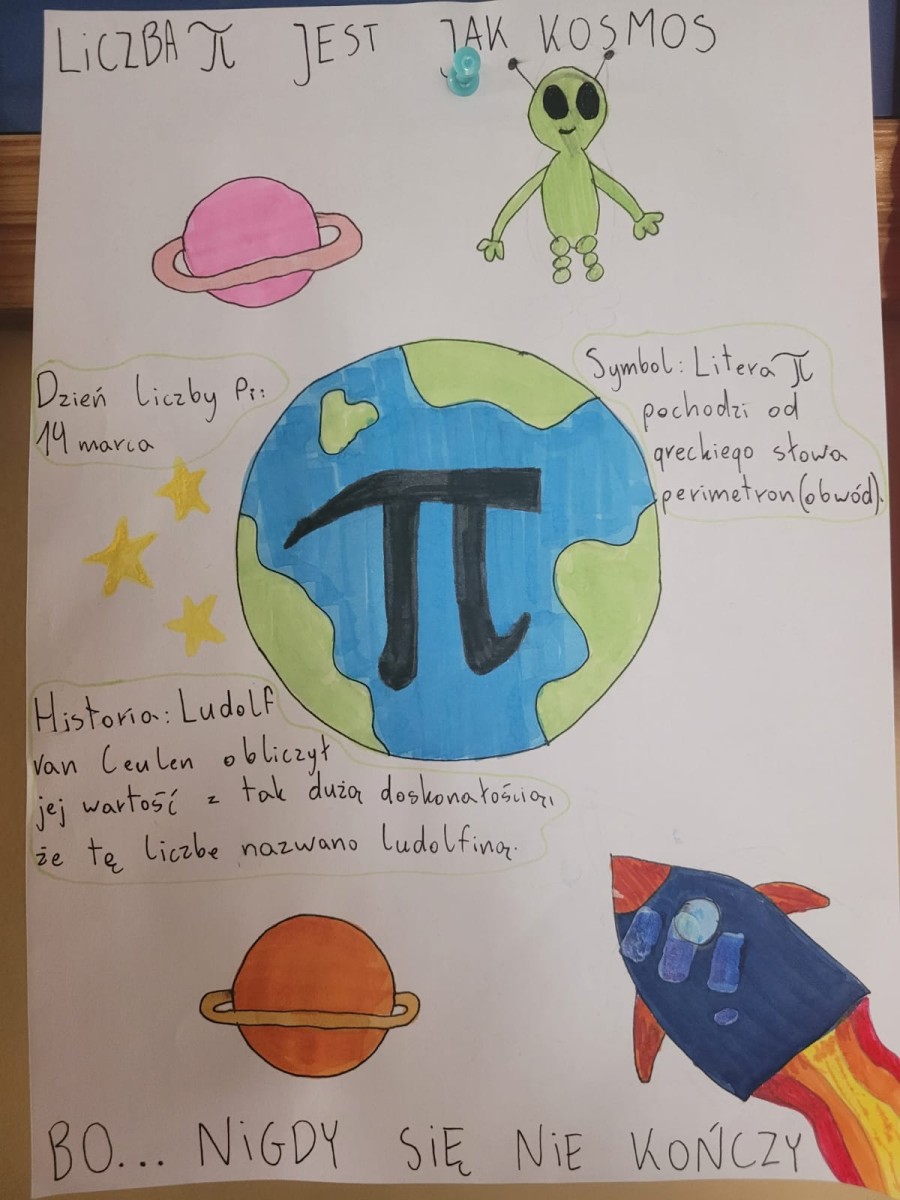 LiCZBA π JEST JAK KOSMOS
Dzień liczby Pi:
14 marca
Symbol: Litera π
pochodzi od
greckiego słowa
perimetron (obwód).
π
Historia: Ludolf
van Ceulen obliczył
jej wartość z tak dużą doskonałością,
że tę liczbe nazwano ludolfiną.
BO... NiGDY SiĘ NiE KOŃCZY